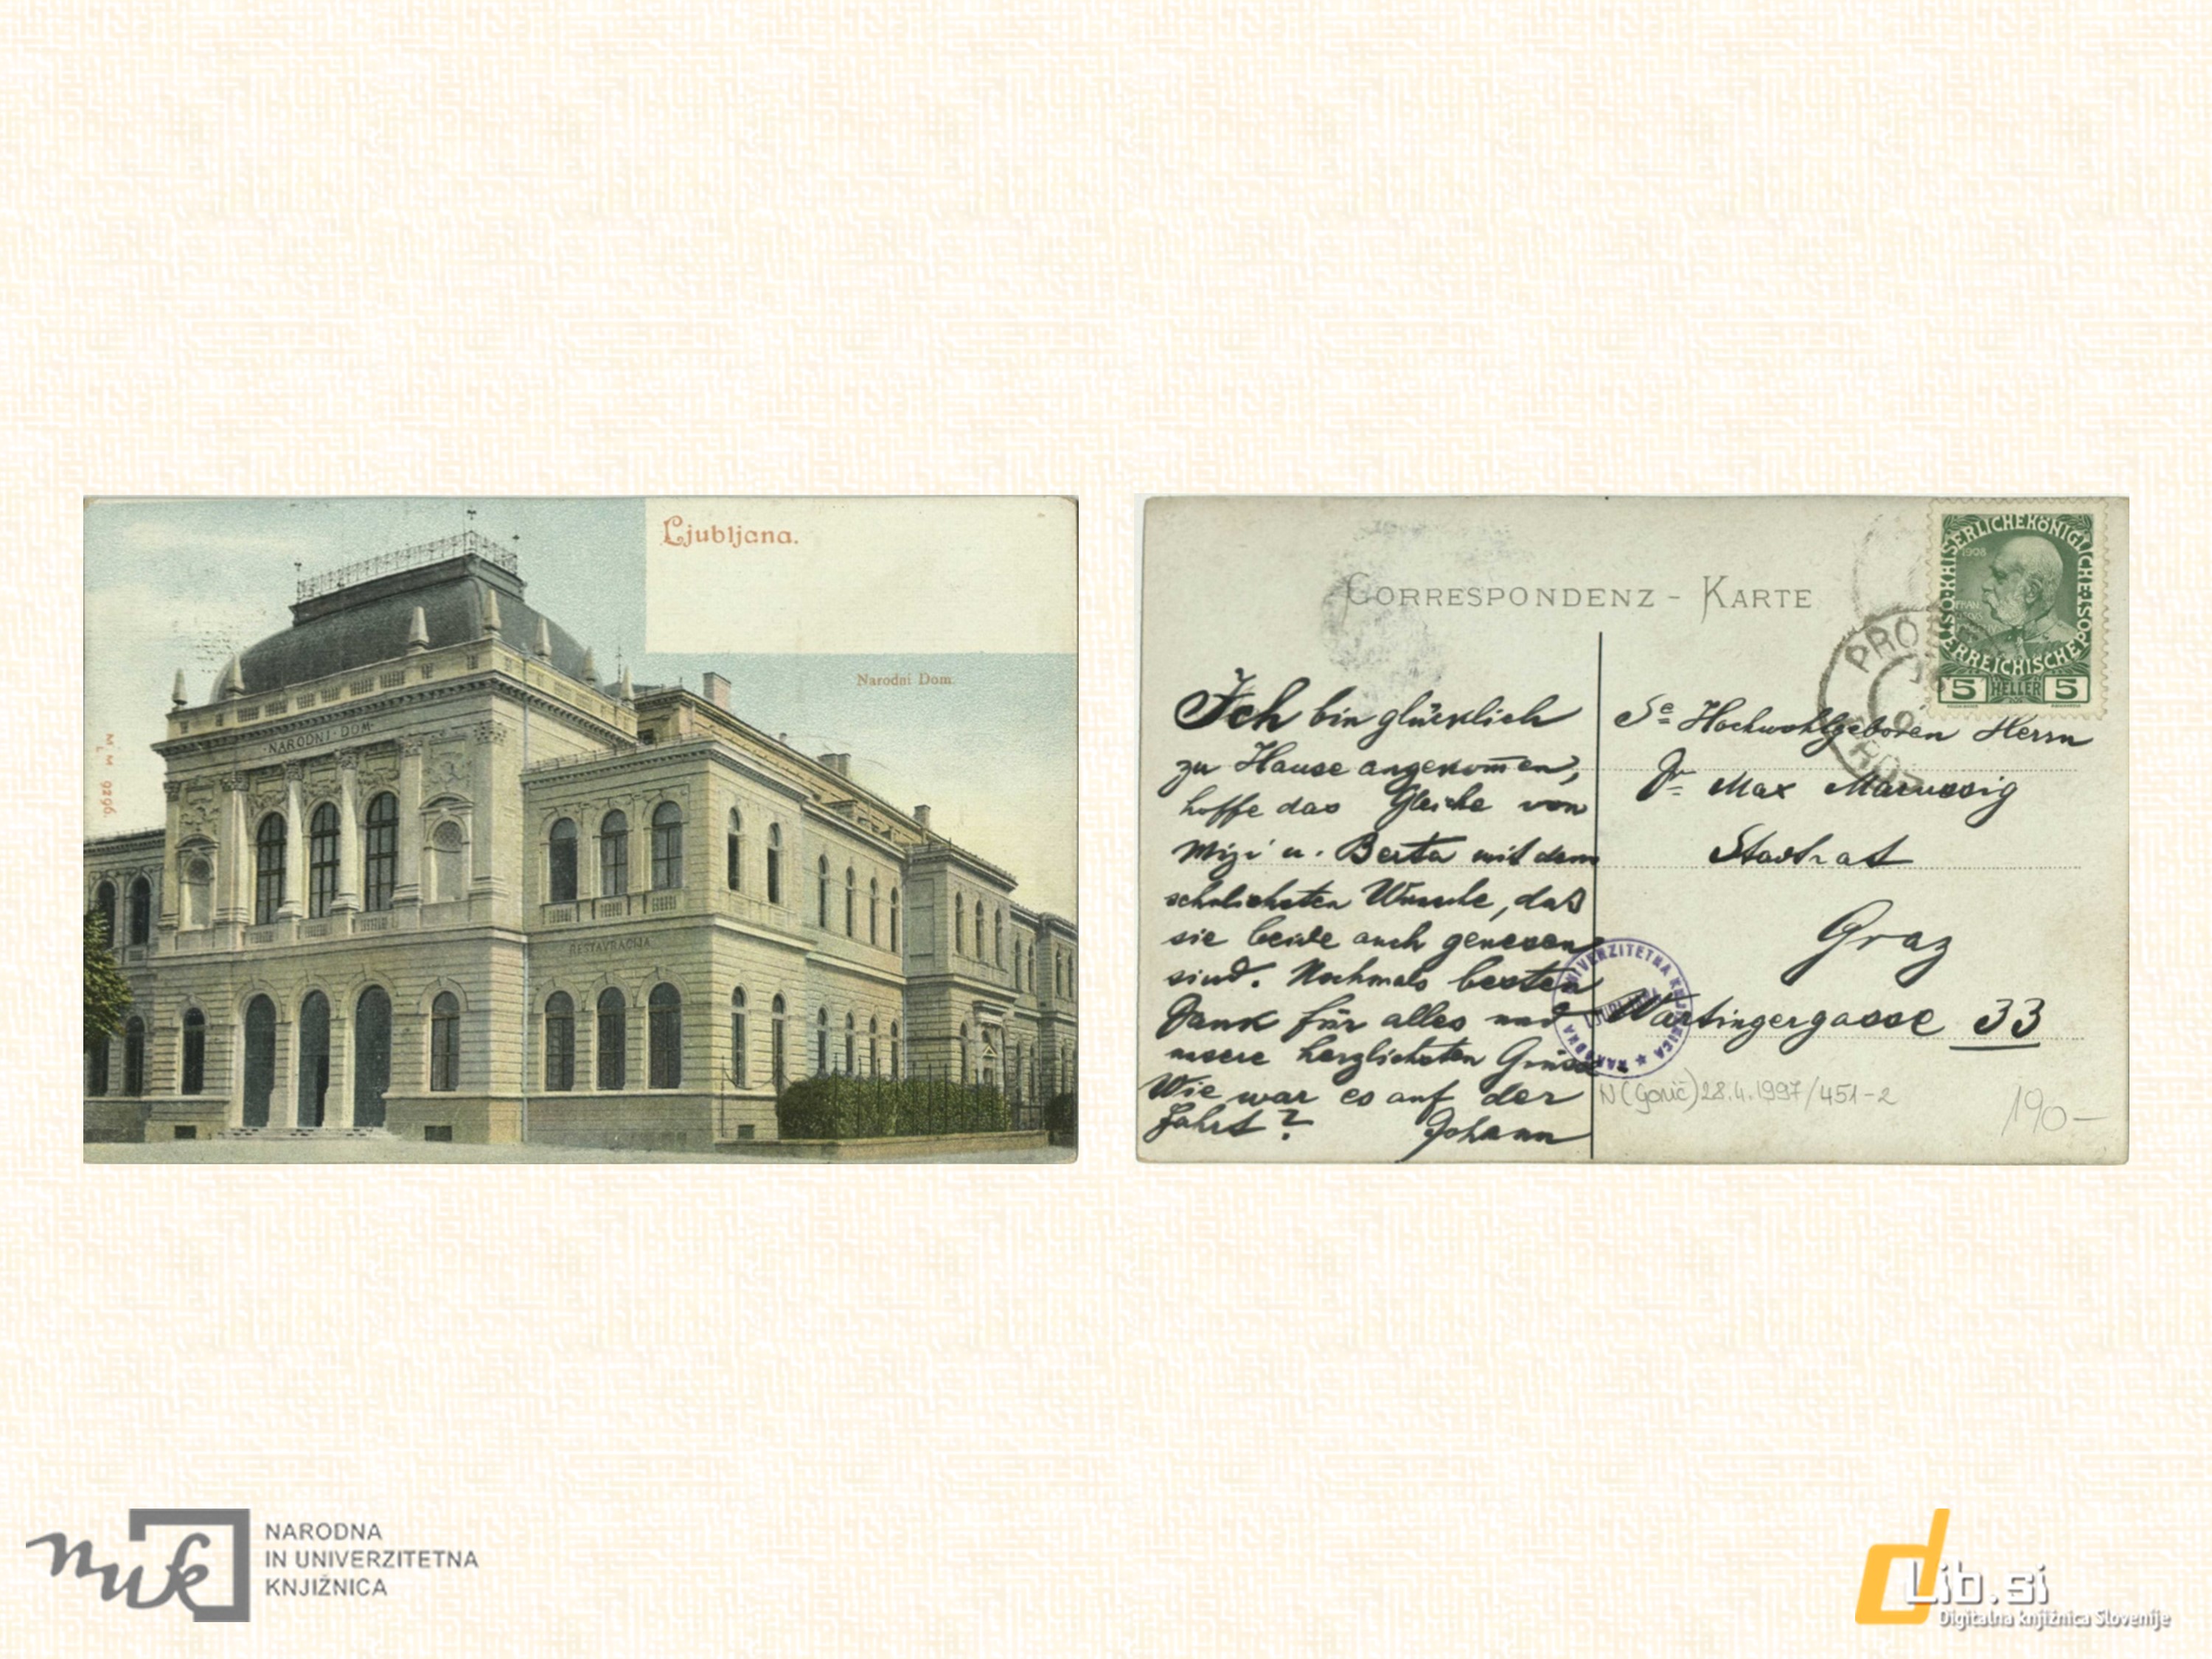 Ljubljana.
Narodni Dom.
·NARODNI·DOM·
RESTAVRACIJA
M L M 9296
CORRESPONDENZ - KARTE
1908
KAISERLICHEKÖNIGLICHE
ÖSTERREICHISCHEPOST
5 HELLER 5
Ich bin glücklich
zu Hause angekom̄en,
hoffe das Gleiche von
Mizi u. Berta mit dem
sehnlichsten Wunsche, daß
sie beide auch genesen
sind. Nochmals besten
Dank für alles und
unsere herzlichsten Grüsse
Wie war es auf der
Fahrt? Johann
Se Hochwohlgeboren Herrn
Dr Max Marussig
Stadtrat
Graz
Wartingergasse 33
NARODNA UNIVERZITETNA KNJIŽNICA ★
LJUBLJANI
N(Gorič)28.4.1997/451-2
190-
nuk
NARODNA
IN UNIVERZITETNA
KNJIŽNICA
dLib.si
Digitalna knjižnica Slovenije